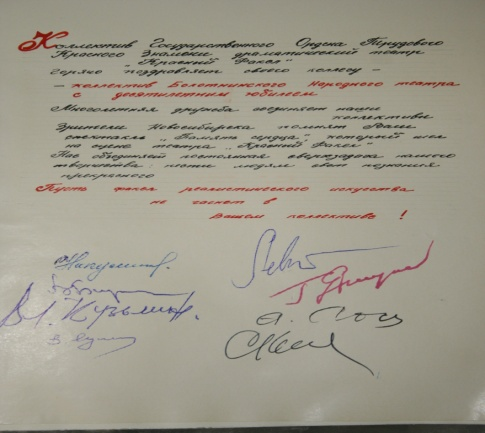 Коллектив Государственного Ордена Трудового
Красного Знамени драматический театр
"Красный Факел"
горячо поздравляет своего коллегу —
— коллектив Болотнинского Народного театра
с десятилетним юбилеем
Многолетняя дружба соединяет наши
коллективы
Зрители Новосибирска помнят Ваш
спектакль "Память сердца" который шел
на сцене театра "Красный Факел"
Нас объединяет постоянная сверхзадача нашего
творчества нести людям свет познания
прекрасного
Пусть факел реалистического искусства
не гаснет в
Вашем коллективе !
Вл. Кузьмин.